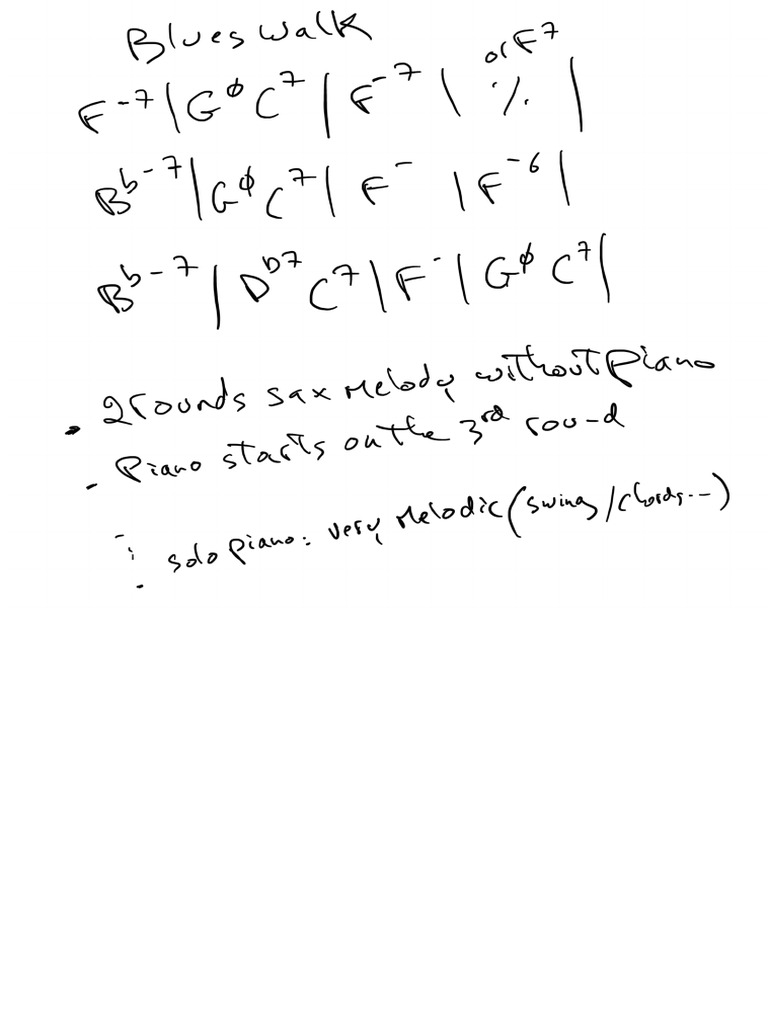 Blues Walk
or F7
F-7 | Gø C7 | F-7 | ٪ |
Bb-7 | Gø C7 | F- | F-6 |
Bb-7 | Db7 C7 | F- | Gø C7 |
• 2 rounds sax Melody without Piano
- Piano starts on the 3rd round
solo piano: very Melodic (swing/chords...)